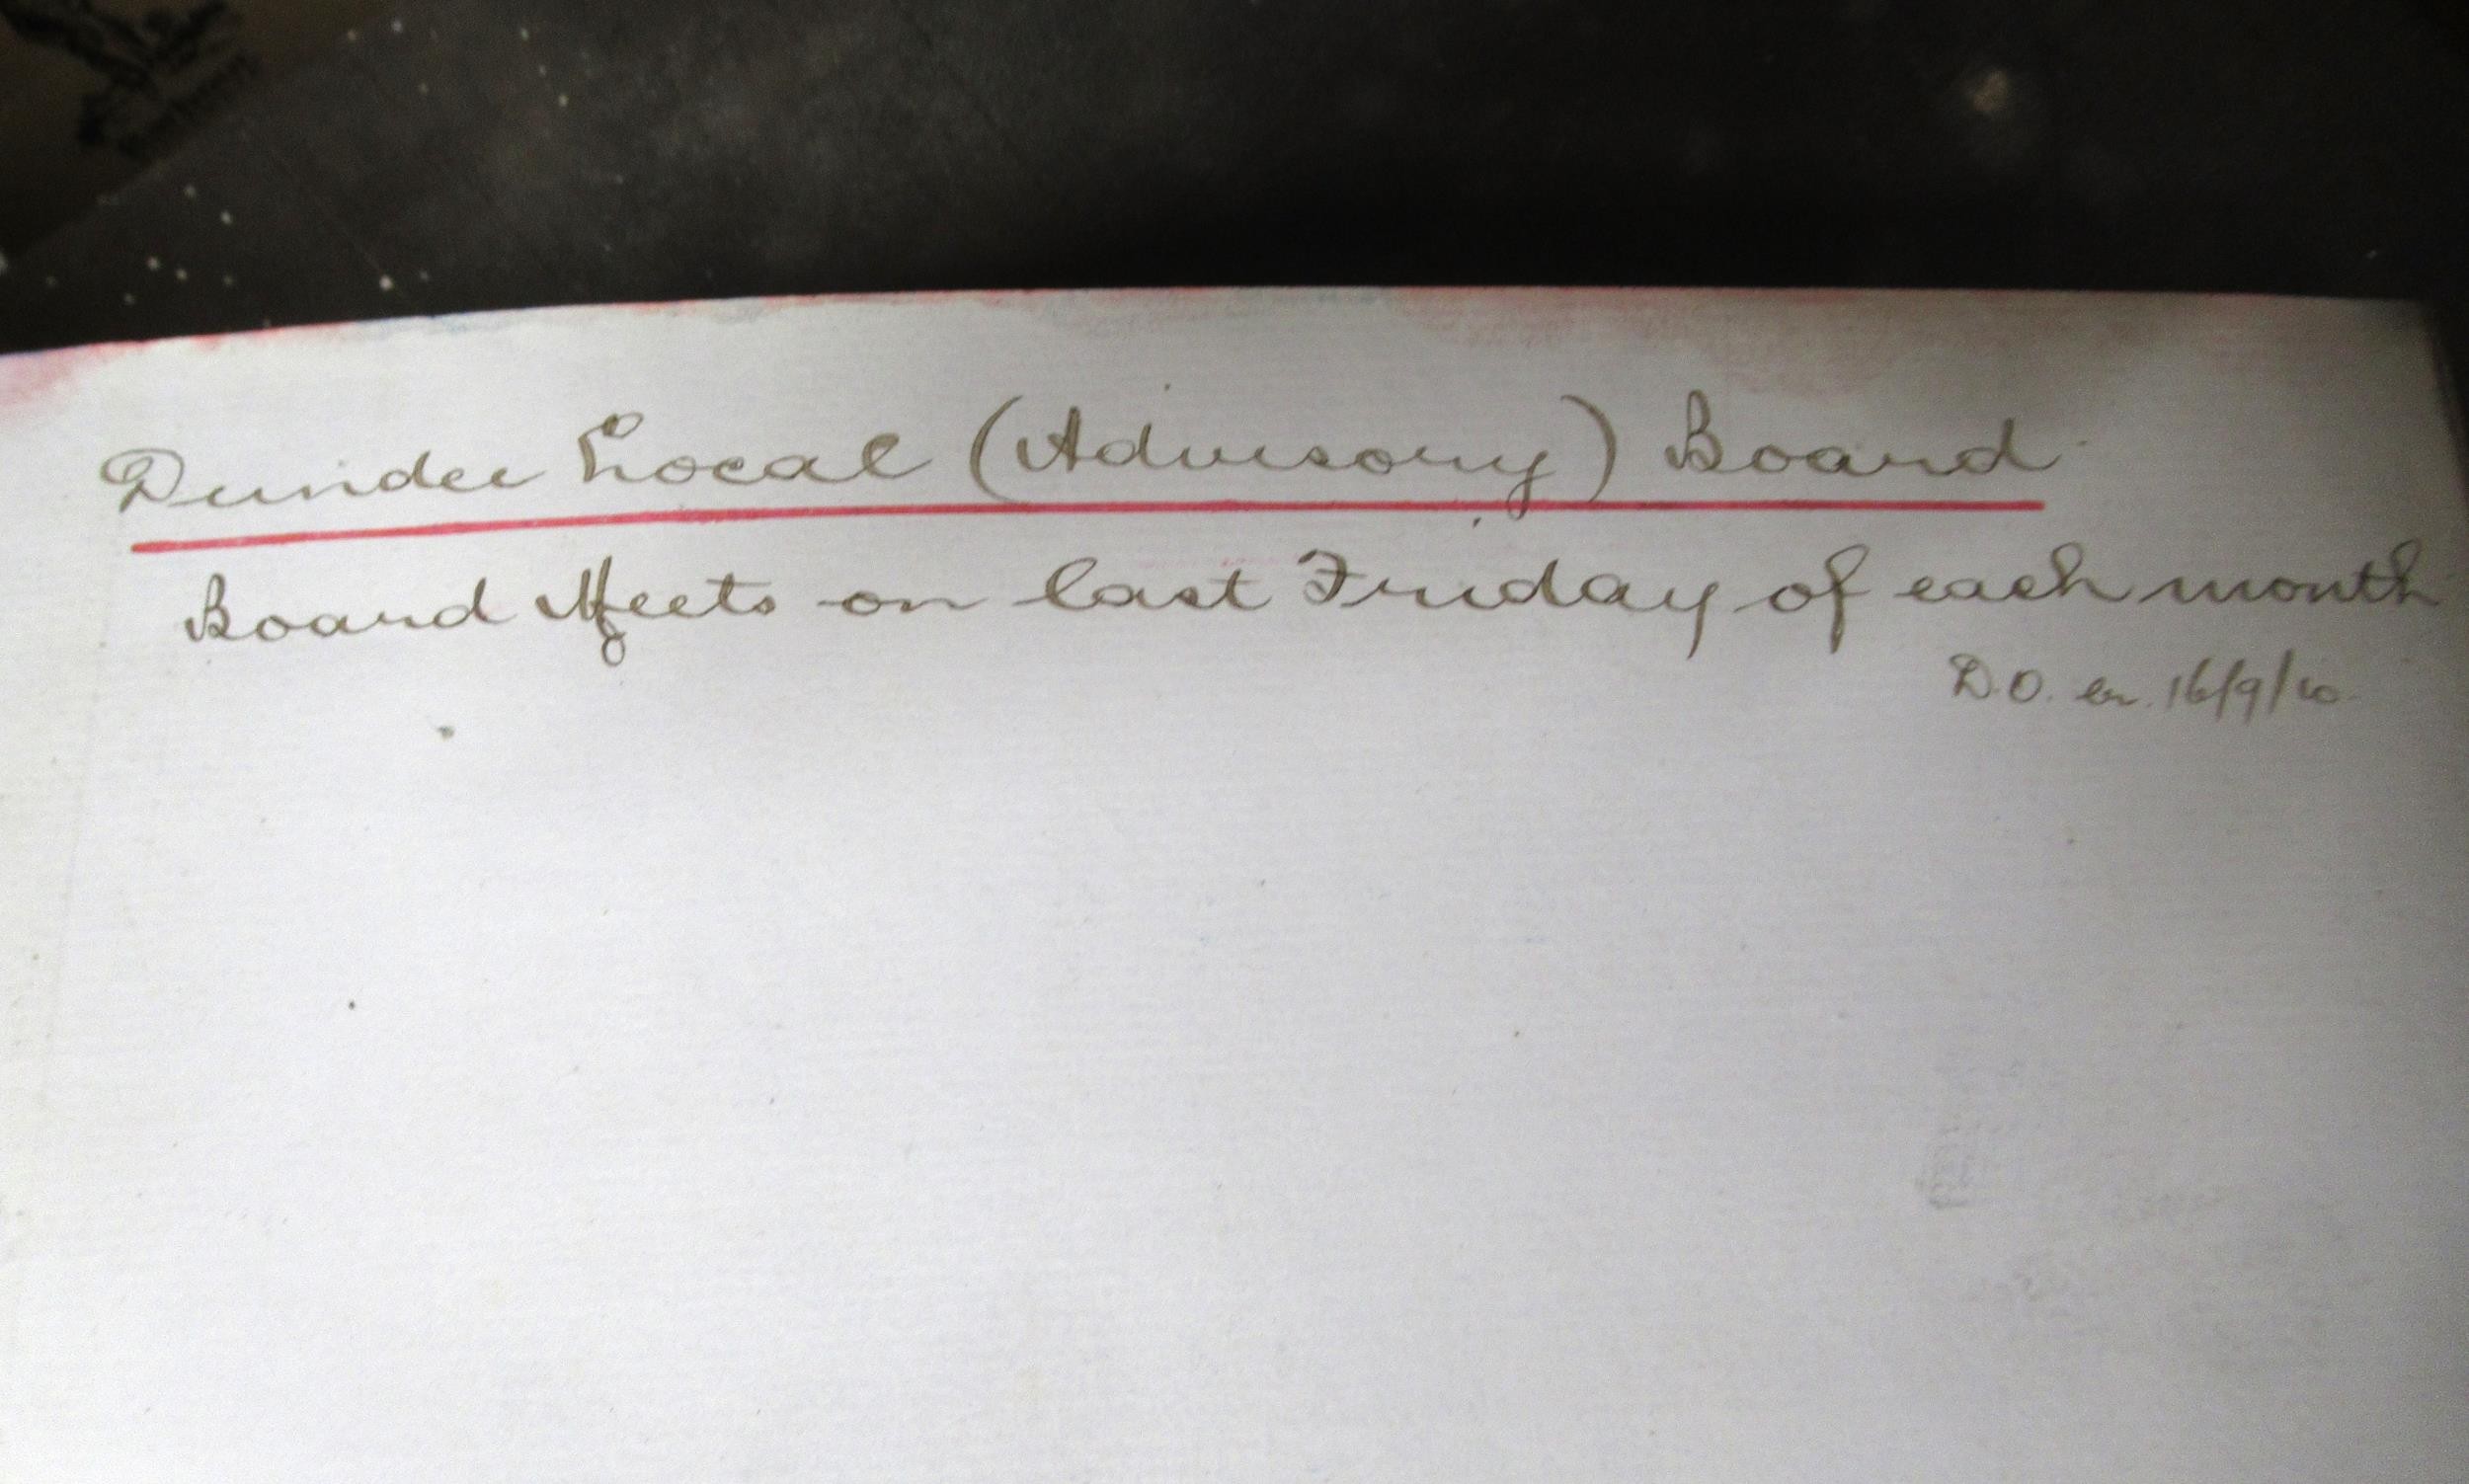 Dundee Local (Advisory) Board.
Board Meets on last Friday of each month
D.O. 16/9/10.